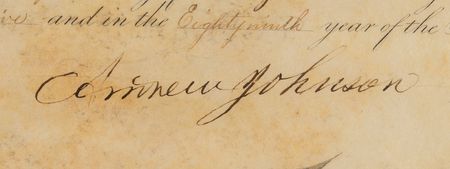 and in the Eightyninth year of the
Andrew Johnson